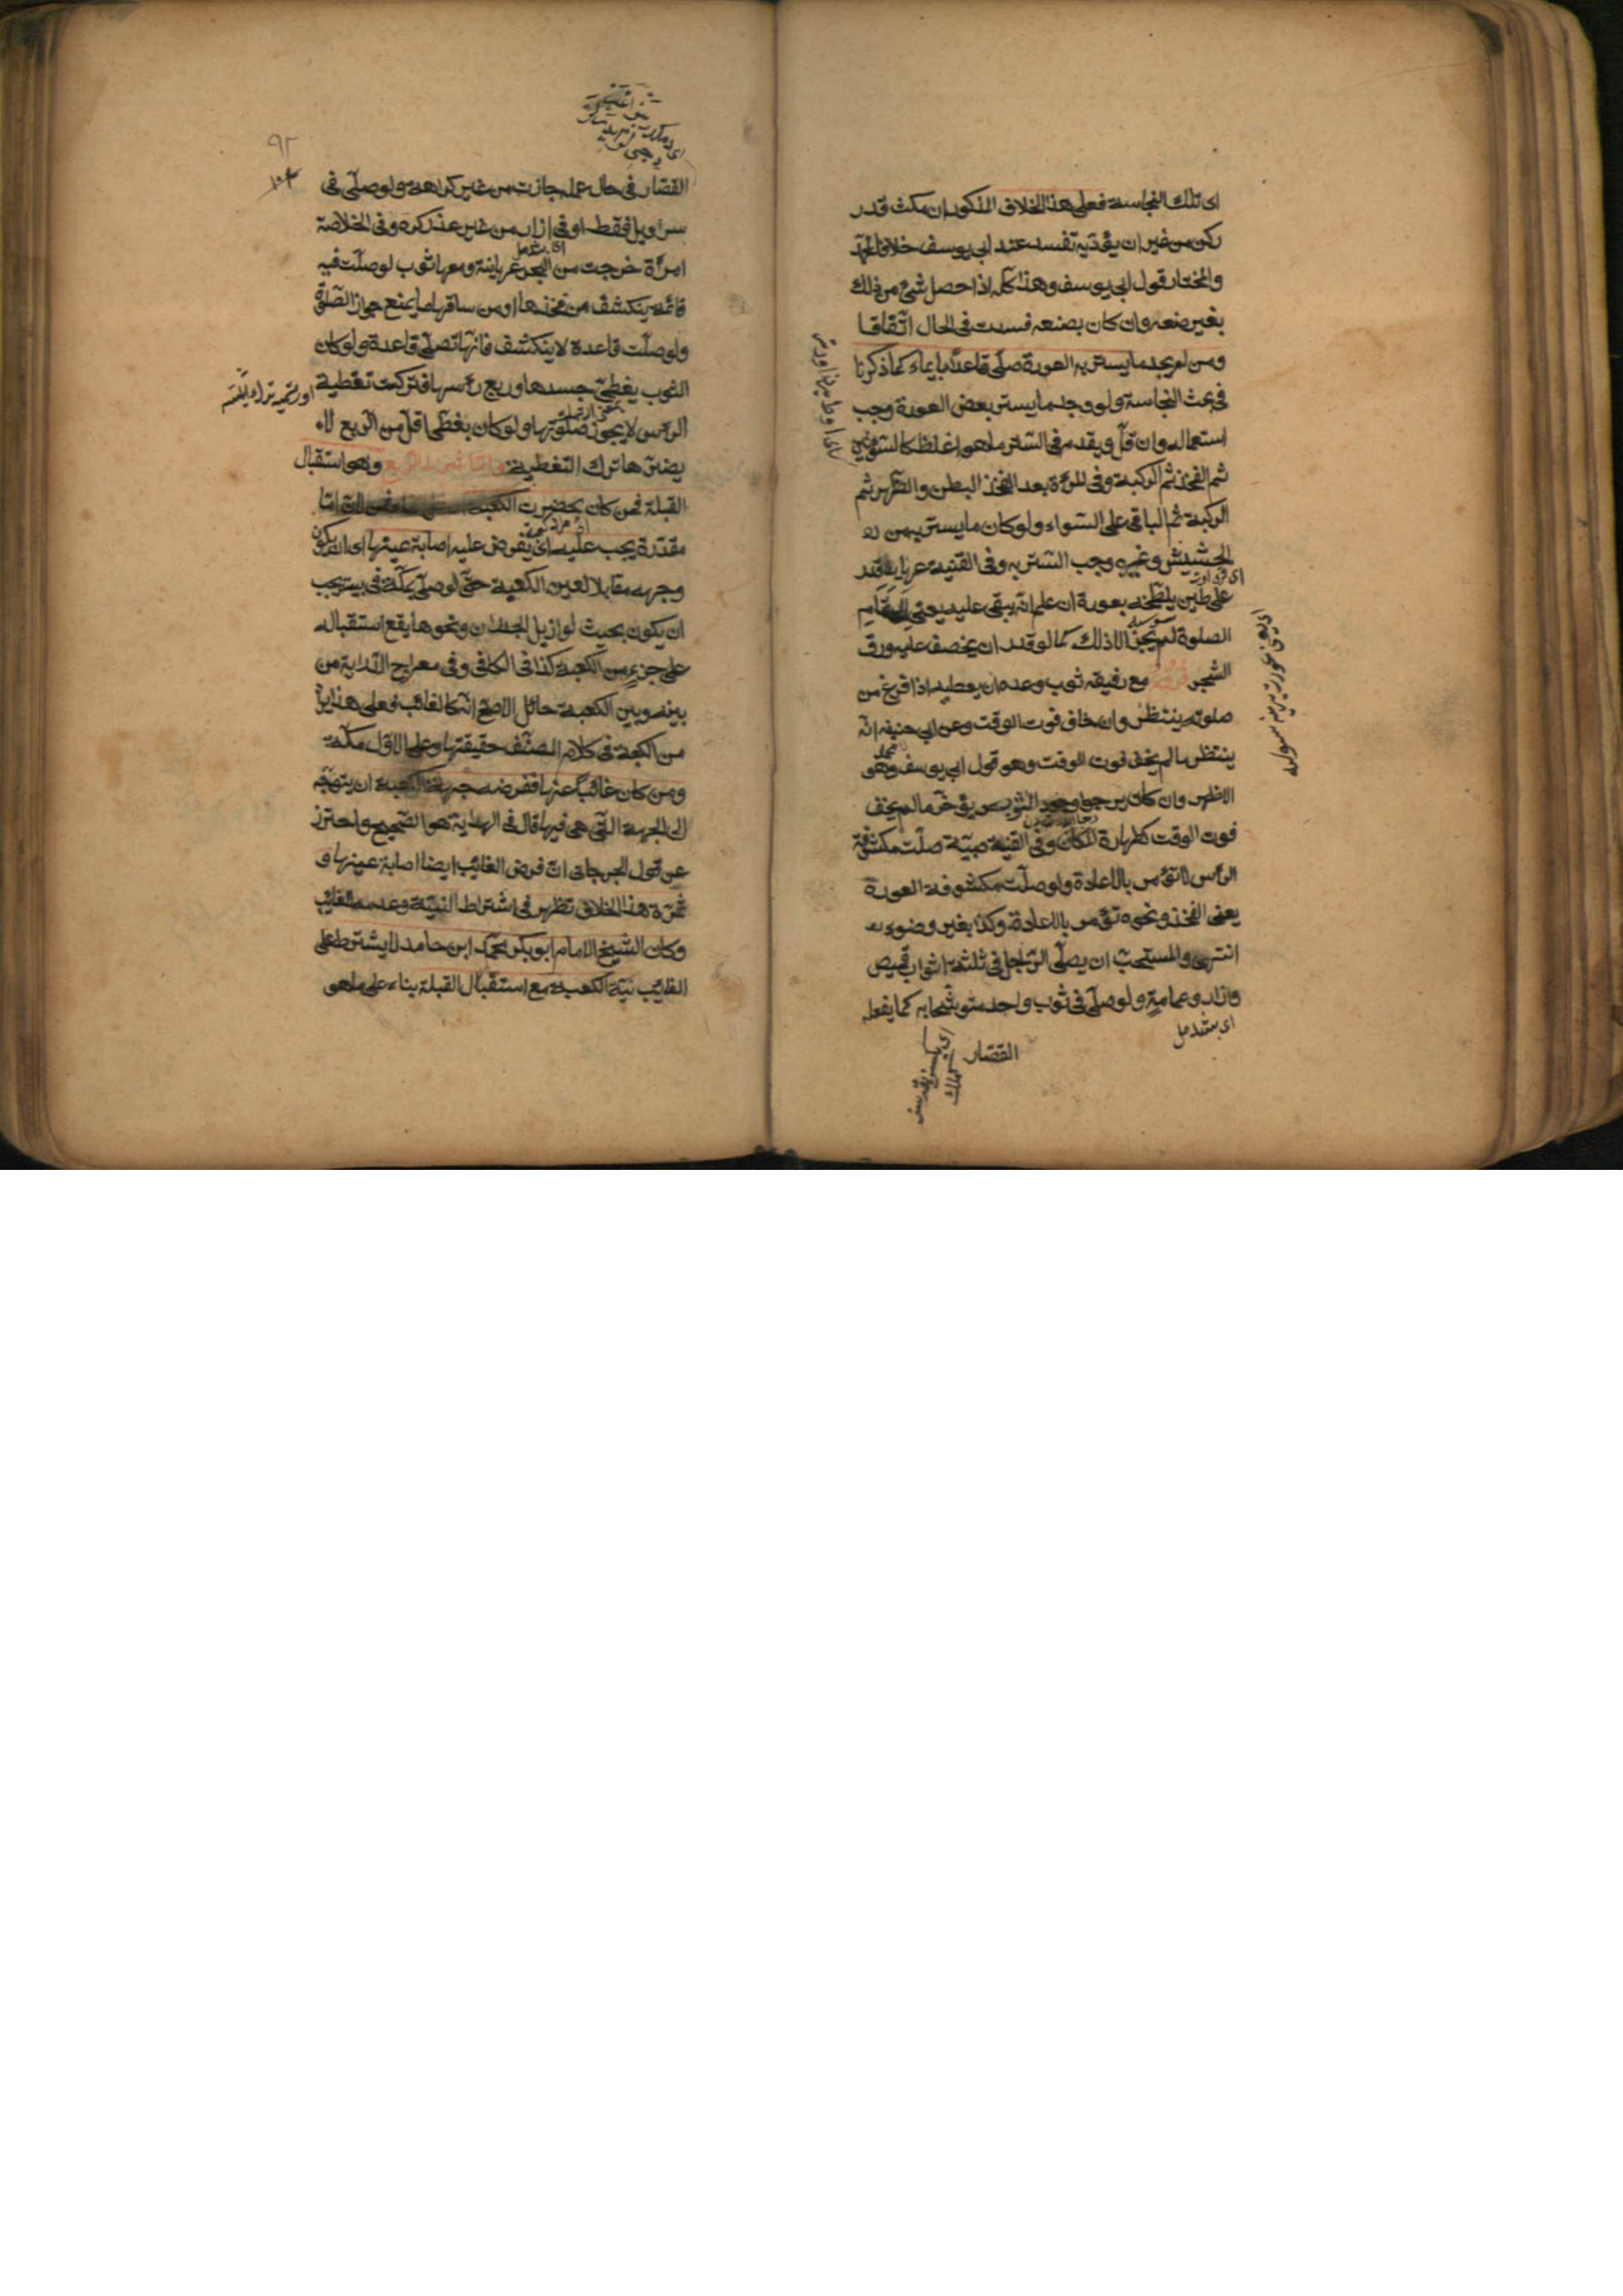 اى تلك النجاسة فعلى هذا الخلاف المذكور ان مكث قدر
ركن من غير ان يؤديه تفسد عند ابى يوسف خلافا لمحمد
والمختار قول ابى يوسف وهذا كله اذا حصل شئ من ذلك
بغير صنعه وان كان بصنعه فسدت فى الحال اتفاقا
ومن لم يجد ما يستر به العورة صلى قاعدا بايماء كما ذكرنا
فى بحث النجاسة ولو وجد ما يستر بعض العورة وجب
استعماله وان قل ويقدم فى الستر ما هو اغلظ كالسوءتين
ثم الفخذ ثم الركبة وفى المرءة بعد الفخذ البطن والظهر ثم
الركبة ثم الباقى على السواء ولو كان ما يستر به من
الحشيش وغيره وجب الستر به وفى القنية عريان قدر
على طين يلطخه بعورة ان علم انه يبقى عليه
الصلوة لم يجز الا ذلك كما لو قدر ان يخصف عليه ورق
الشجر مع رفيقه ثوب وعده ان يعطيه اذا فرغ من
صلوته ينتظر وان خاف فوت الوقت وعن ابى حنيفه انه
ينتظر ما لم يخف فوت الوقت وهو قول ابى يوسف وهو
الاظهر وان كان يرجوا وجود الثوب يؤخر ما لم يخف
فوت الوقت كطهارة المكان وفى القنية صبية صلت مكشوفة
الرأس لا تؤمر بالاعادة ولو صلت مكشوفة العورة
يعنى الفخذ ونحوه تؤمر بالاعادة وكذا بغير وضوء
انتهى والمستحب ان يصلى الرجل فى ثلثة اثواب قميص
وازار وعمامة ولو صلى فى ثوب واحد متوشحا به كما يفعله
القصار
٩٢
القصار فى حال عمله جازت من غير كراهة ولو صلى فى
سراويل فقط او فى ازار من غير عذر كره وفى الخلاصة
امرأة خرجت من البحر عريانة ومعها ثوب لو صلت فيه
قائمة ينكشف من فخذها او من ساقها ما يمنع جواز الصلوة
ولو صلت قاعدة لا ينكشف فانها تصلى قاعدة ولو كان
الثوب يغطى جسدها وربع رءسها فتركت تغطية
الرءس لا يجوز صلوتها ولو كان يغطى اقل من الربع لا
يضرها ترك التغطية واما الشرط الرابع وهو استقبال
القبلة فمن كان بحضرت الكعبة
مقدرة يجب عليه اى يفرض عليه اصابة عينها اى ان يكون
وجهه مقابلا لعين الكعبة حتى لو صلى بمكة فى بيته يجب
ان يكون بحيث لو ازيل الجدران ونحوها يقع استقباله
على جزء من الكعبة كذا فى الكافى وفى معراج الدراية من
بينه وبين الكعبة حائل الاصح انه كالغائب فعلى هذا يراد
من الكعبة فى كلام المصنف حقيقتها وعلى الاول مكة
ومن كان غائبا عنها ففرضه جهة الكعبة ان يتوجه
الى الجهة التى هى فيها قال فى الهداية هو الصحيح واحترز
عن قول الجرجانى ان فرض الغائب ايضا اصابة عينها و
ثمرة هذا الخلاف تظهر فى اشتراط النية وعدمه للغائب
وكان الشيخ الامام ابو بكر محمد ابن حامد لا يشترط على
الغائب نية الكعبة مع استقبال القبلة بناء على ما هو